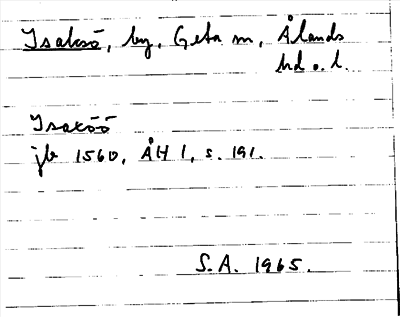 Isaksö, by, Geta sn, Ålands
hd o. l.
Isaxöö
jb 1560, ÅH 1, s. 191.
S.A. 1965.